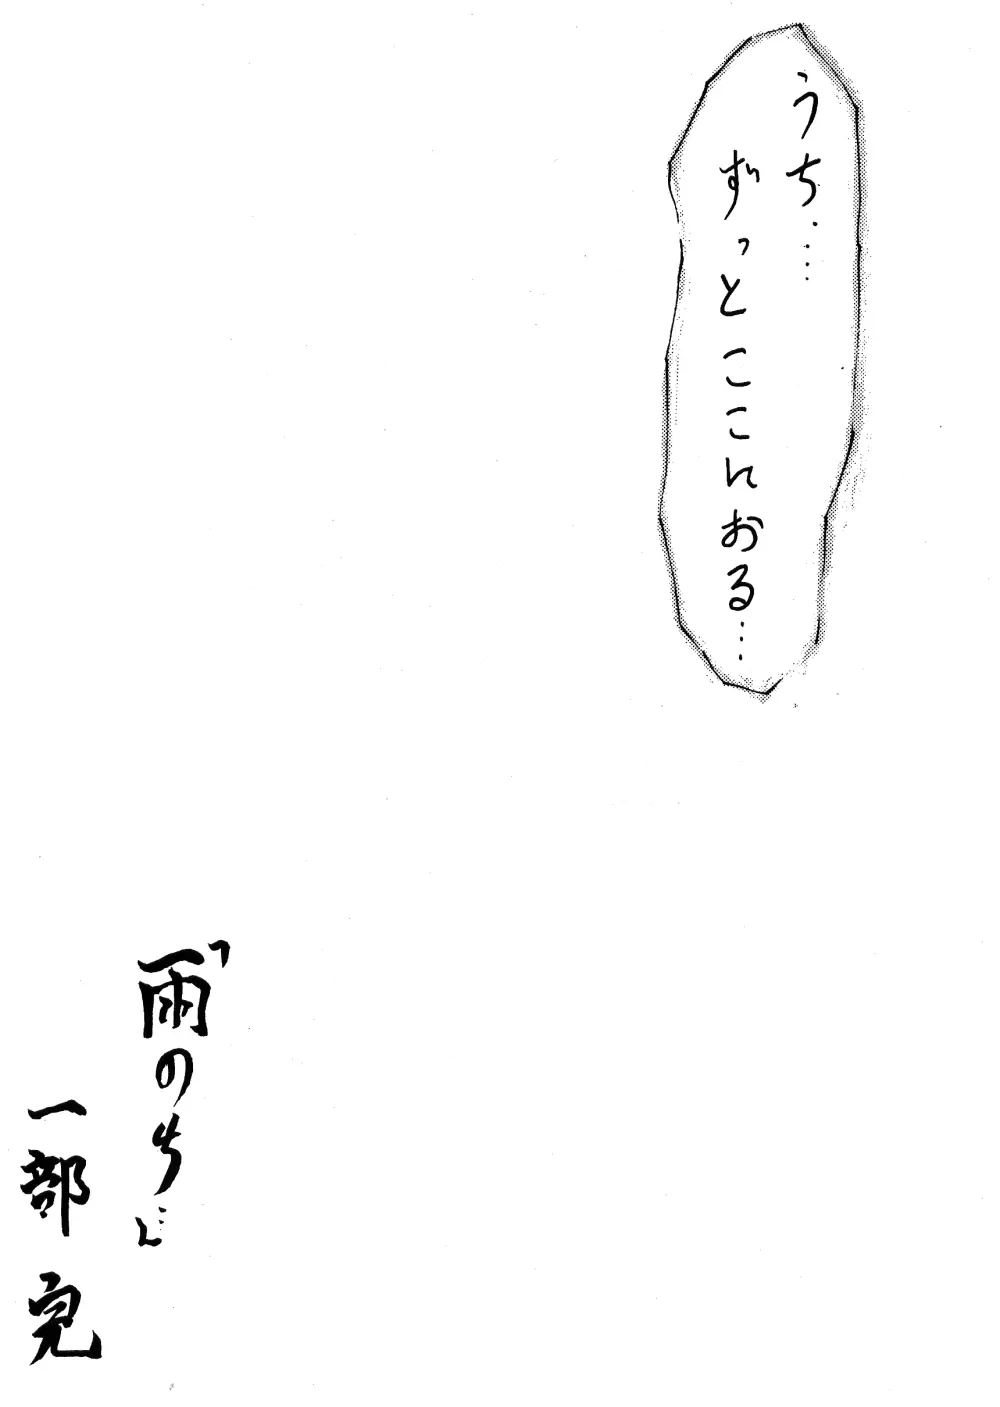 うち‥‥
ずっとここにおる…
「雨のち…」
一部完